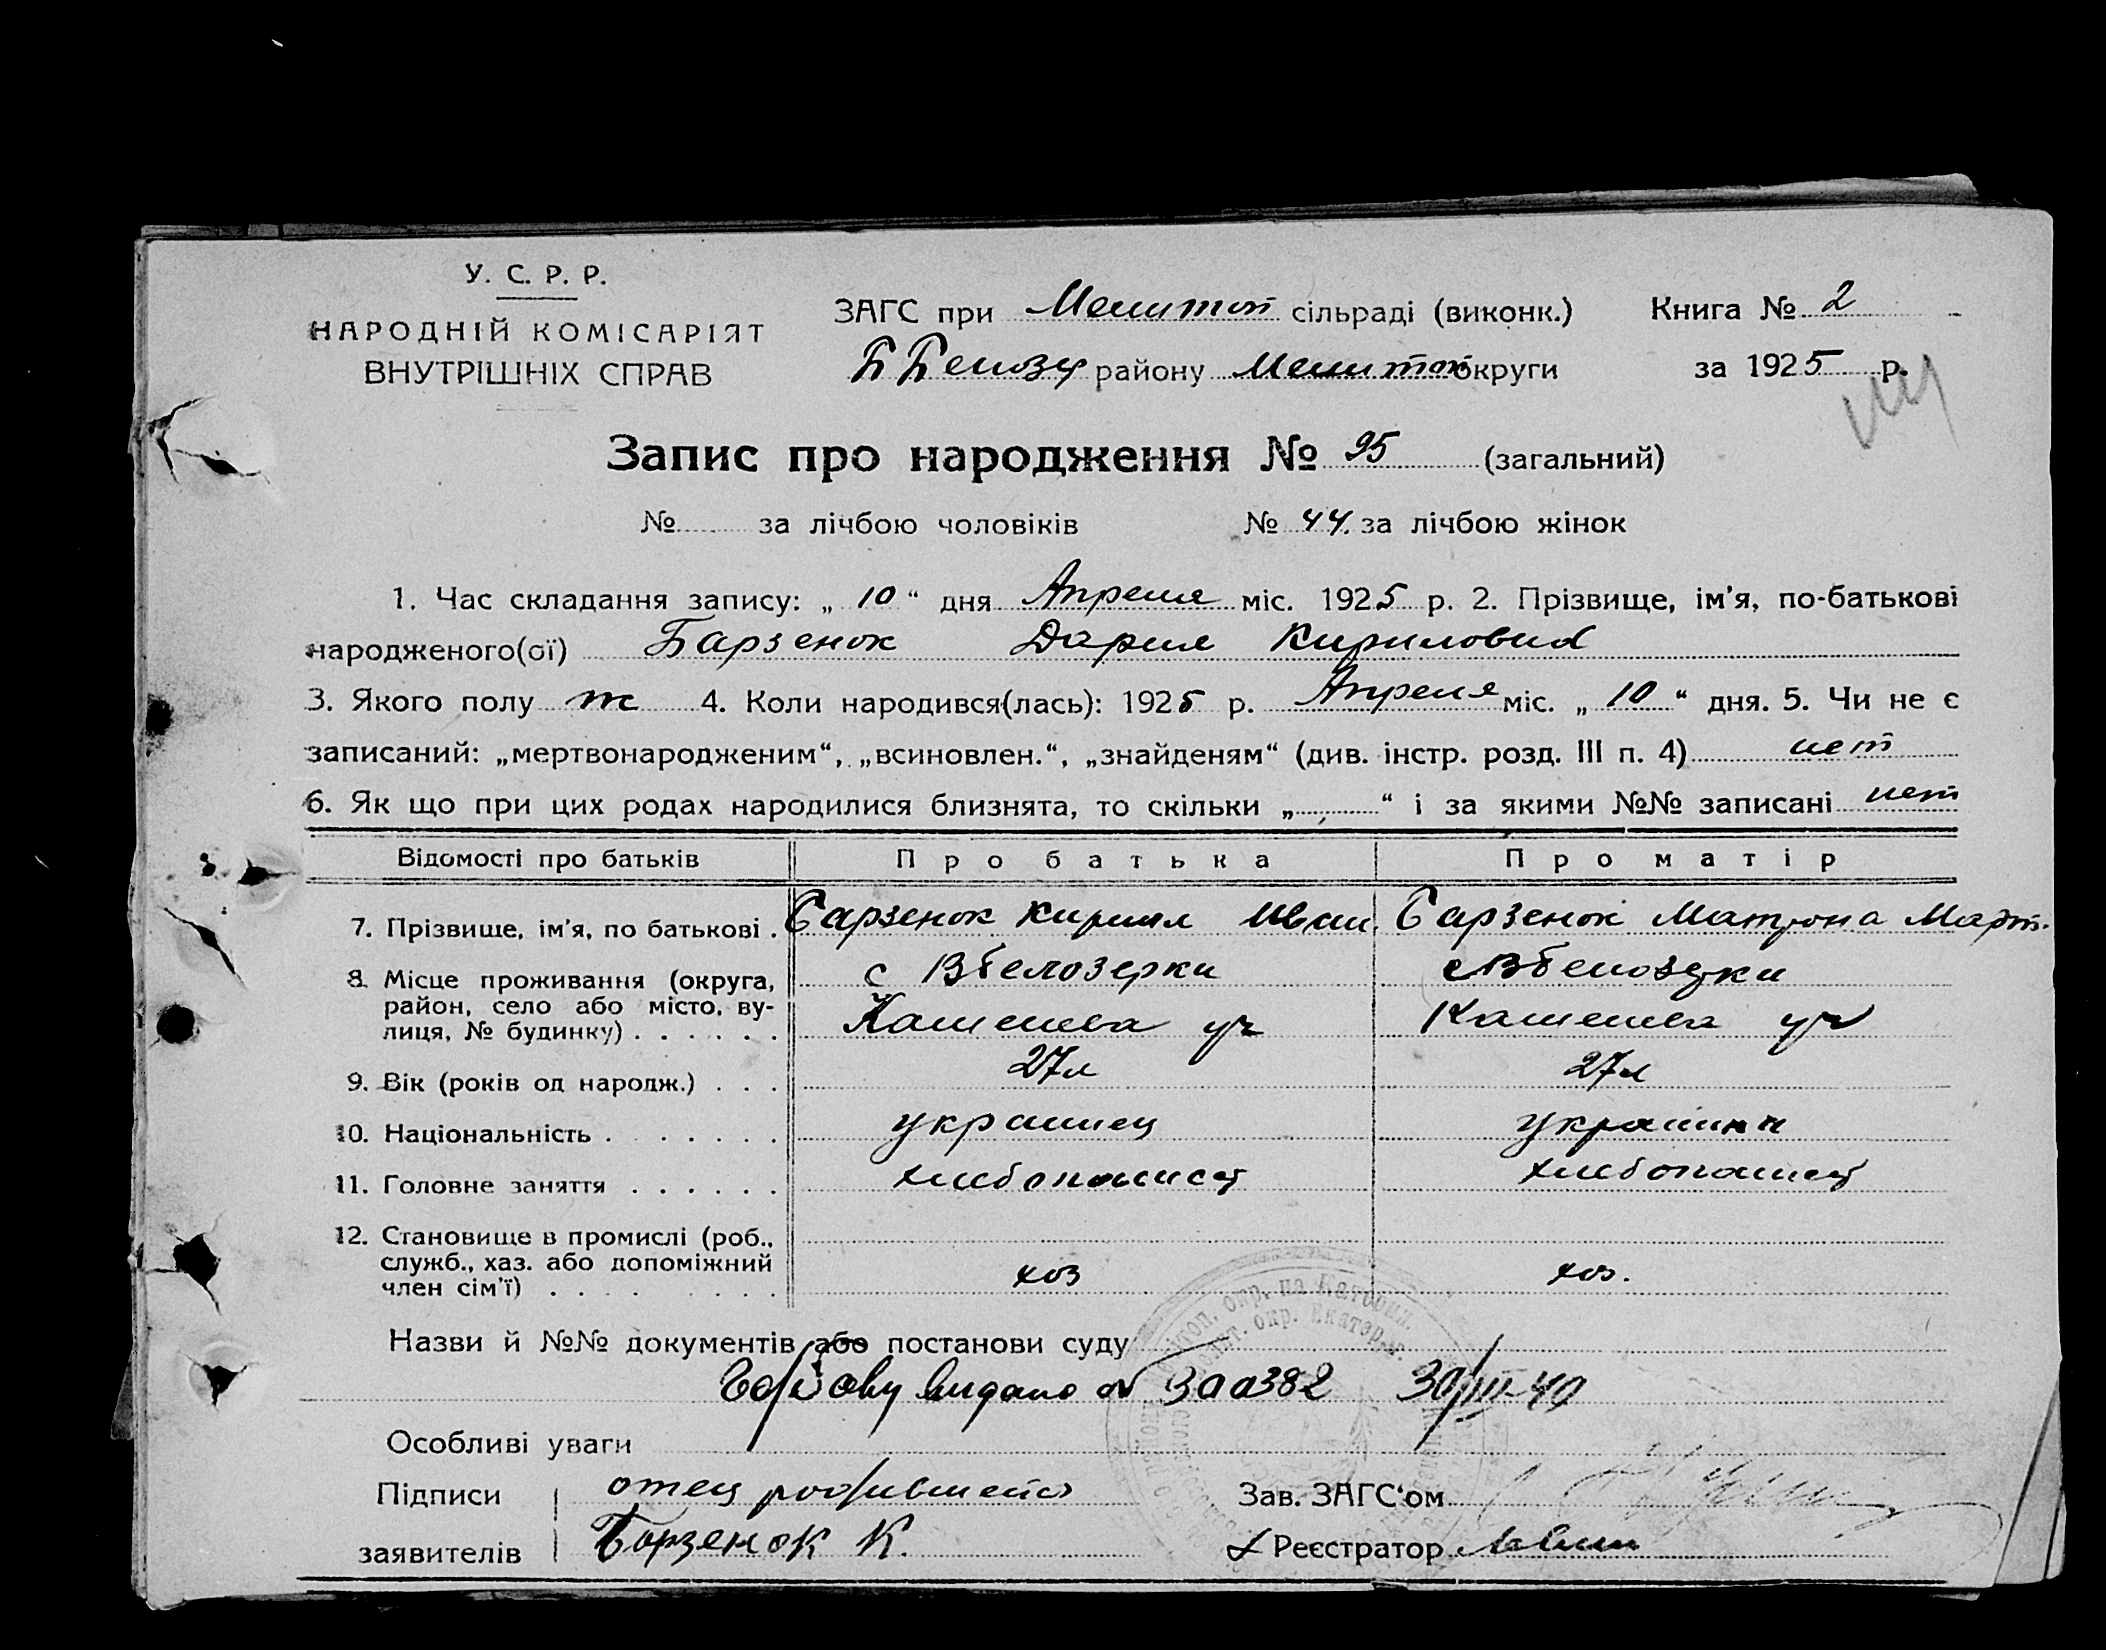 У. С. Р. Р.
НАРОДНІЙ КОМІСАРІЯТ
ВНУТРІШНІХ СПРАВ
ЗАГС при Мелитоп сільраді (виконк.) Книга № 2
Б Белозу району Мелитоп округи за 1925 р.
Запис про народження № 95 (загальний)
№ за лічбою чоловіків № 44. за лічбою жінок
1. Час складання запису: „ 10 “ дня Апреля міс. 1925 р. 2. Прізвище, ім'я, по-батькові
народженого(ої) Барзенок Дария Кириловна
3. Якого полу ж 4. Коли народився(лась): 1925 р. Апреля міс. „ 10 “ дня. 5. Чи не є
записаний: „мертвонародженим“, „всиновлен.“, „знайденям“ (див. інстр. розд. III п. 4) нет
6. Як що при цих родах народилися близнята, то скільки „ “ і за якими №№ записані нет
Відомості про батьків Про батька Про матір
7. Прізвище, ім'я, по батькові . Барзенок Кирилл Иван. Барзенок Матрона Март.
8. Місце проживання (округа, с Вбелозерки с Вбелозерки
район, село або місто, ву-
лиця, № будинку) . . . . . . Кашенева уч Кашенева уч
9. Вік (років од народж.) . . . 27л 27л
10. Національність . . . . . . . украинец украинк
11. Головне заняття . . . . . . хлебопашец хлебопашец
12. Становище в промислі (роб.,
служб., хаз. або допоміжний
член сім'ї) . . . . . . . . хоз хоз.
Назви й №№ документів або постанови суду
выдано 300382 30/III-49
Особливі уваги
Підписи отец родившейся Зав. ЗАГС'ом
заявителів Борзенок К. Реєстратор